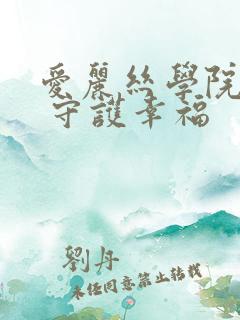 愛麗絲學院
守護幸福
劉丹
未經同意禁止轉載